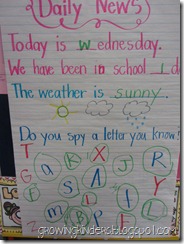 Daily News
Today is Wednesday.
We have been in school
The weather is sunny.
Do you spy a letter you know?
T K X J R
G a
R S A i L
O B
W m I P E
growingkinders.blogspot.com